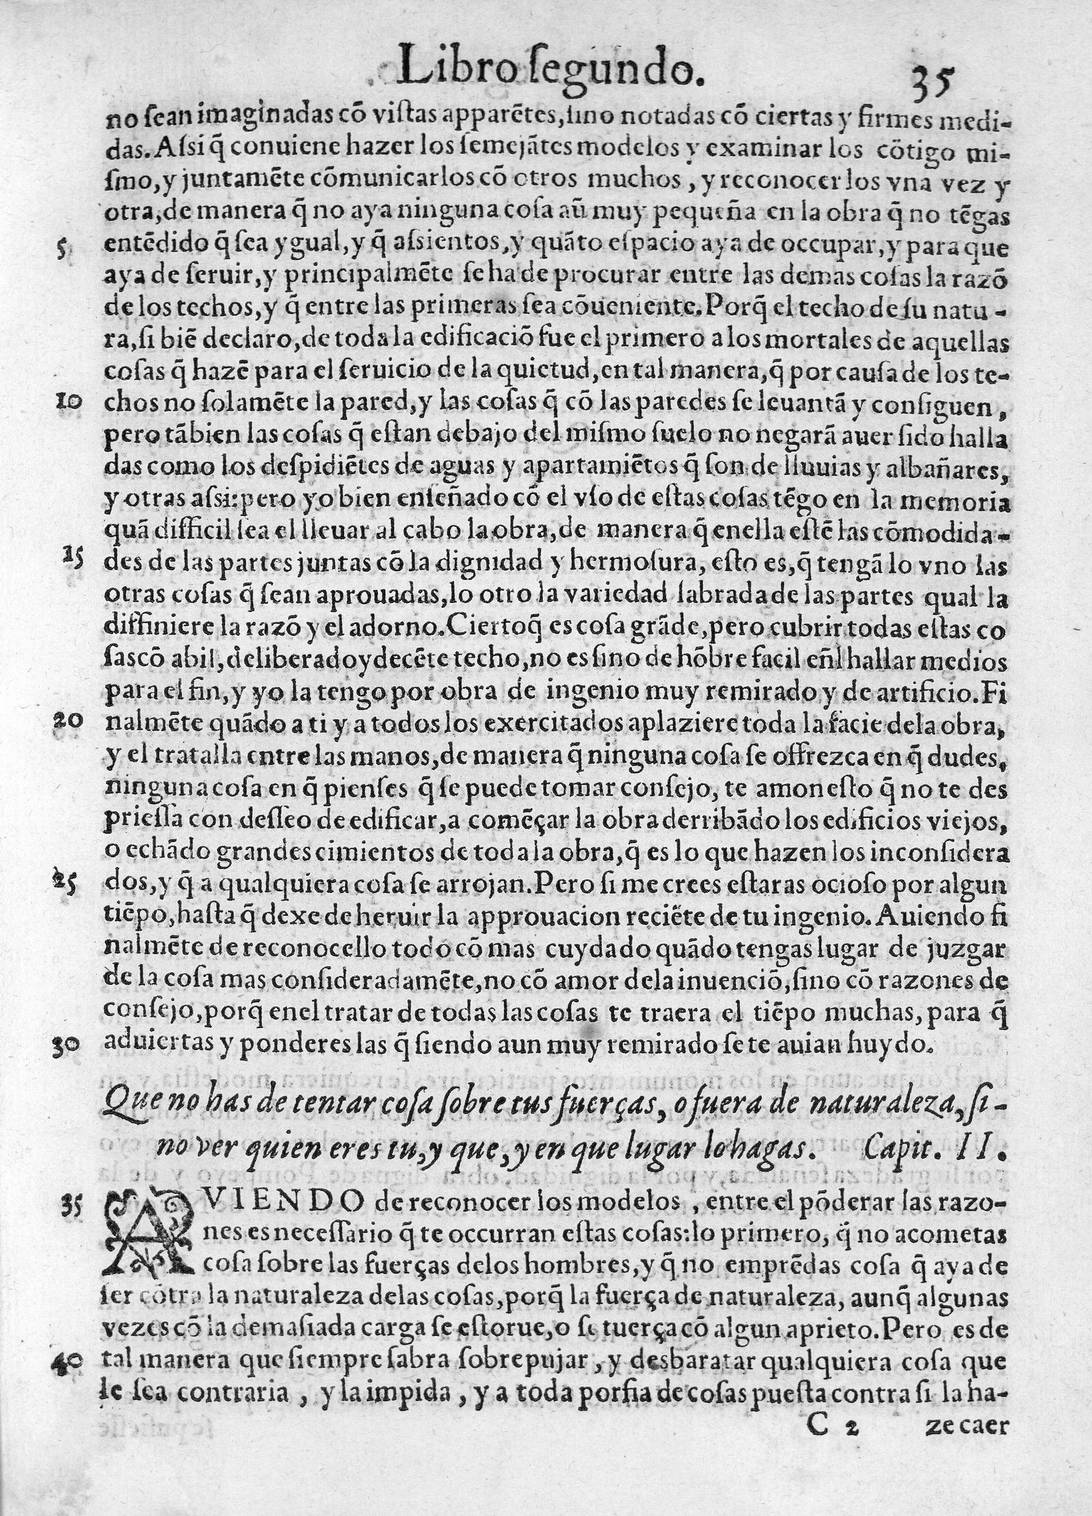 Libro ſegundo. 35
no ſean imaginadas cõ viſtas apparẽtes, ſino notadas cõ ciertas y firmes medi-
das. Aſsi q̃ conuiene hazer los ſemejãtes modelos y examinar los cõtigo mi-
ſmo, y juntamẽte cõmunicarlos cõ otros muchos, y reconocer los vna vez y
otra, de manera q̃ no aya ninguna coſa aũ muy pequeña en la obra q̃ no tẽgas
5 entẽdido q̃ ſea ygual, y q̃ aſsientos, y quãto eſpacio aya de occupar, y para que
aya de ſeruir, y principalmẽte ſe ha de procurar entre las demas coſas la razõ
de los techos, y q̃ entre las primeras ſea cõueniente. Porq̃ el techo de ſu natu-
ra, ſi biẽ declaro, de toda la edificaciõ fue el primero a los mortales de aquellas
coſas q̃ hazẽ para el ſeruicio de la quietud, en tal manera, q̃ por cauſa de los te-
10 chos no ſolamẽte la pared, y las coſas q̃ cõ las paredes ſe leuantã y conſiguen,
pero tãbien las coſas q̃ eſtan debajo del miſmo ſuelo no negarã auer ſido halla
das como los deſpidiẽtes de aguas y apartamiẽtos q̃ ſon de lluuias y albañares,
y otras aſsi: pero yo bien enſeñado cõ el vſo de eſtas coſas tẽgo en la memoria
quã difficil ſea el lleuar al cabo la obra, de manera q̃ enella eſtẽ las cõmodida-
15 des de las partes juntas cõ la dignidad y hermoſura, eſto es, q̃ tengã lo vno las
otras coſas q̃ ſean aprouadas, lo otro la variedad labrada de las partes qual la
diffiniere la razõ y el adorno. Cierto q̃ es coſa grãde, pero cubrir todas eſtas co
ſas cõ abil, deliberado y decẽte techo, no es ſino de hõbre facil eñl hallar medios
para el fin, y yo la tengo por obra de ingenio muy remirado y de artificio. Fi
20 nalmẽte quãdo a ti y a todos los exercitados aplaziere toda la facie dela obra,
y el tratalla entre las manos, de manera q̃ ninguna coſa ſe offrezca en q̃ dudes,
ninguna coſa en q̃ pienſes q̃ ſe puede tomar conſejo, te amoneſto q̃ no te des
prieſſa con deſſeo de edificar, a comẽçar la obra derribãdo los edificios viejos,
o echãdo grandes cimientos de toda la obra, q̃ es lo que hazen los inconſidera
25 dos, y q̃ a qualquiera coſa ſe arrojan. Pero ſi me crees eſtaras ocioſo por algun
tiẽpo, haſta q̃ dexe de heruir la approuacion reciẽte de tu ingenio. Auiendo fi
nalmẽte de reconocello todo cõ mas cuydado quãdo tengas lugar de juzgar
de la coſa mas conſideradamẽte, no cõ amor dela inuenciõ, ſino cõ razones de
conſejo, porq̃ enel tratar de todas las coſas te traera el tiẽpo muchas, para q̃
30 aduiertas y ponderes las q̃ ſiendo aun muy remirado ſe te auian huydo.
Que no has de tentar coſa ſobre tus fuerças, o fuera de naturaleza, ſi-
no ver quien eres tu, y que, y en que lugar lo hagas. Capit. II.
35 AVIENDO de reconocer los modelos, entre el põderar las razo-
nes es neceſſario q̃ te occurran eſtas coſas: lo primero, q̃ no acometas
coſa ſobre las fuerças delos hombres, y q̃ no emprẽdas coſa q̃ aya de
ſer cõtra la naturaleza delas coſas, porq̃ la fuerça de naturaleza, aunq̃ algunas
vezes cõ la demaſiada carga ſe eſtorue, o ſe tuerça cõ algun aprieto. Pero es de
40 tal manera que ſiempre ſabra ſobrepujar, y desbaratar qualquiera coſa que
le ſea contraria, y la impida, y a toda porfia de coſas pueſta contra ſi la ha-
C 2 ze caer